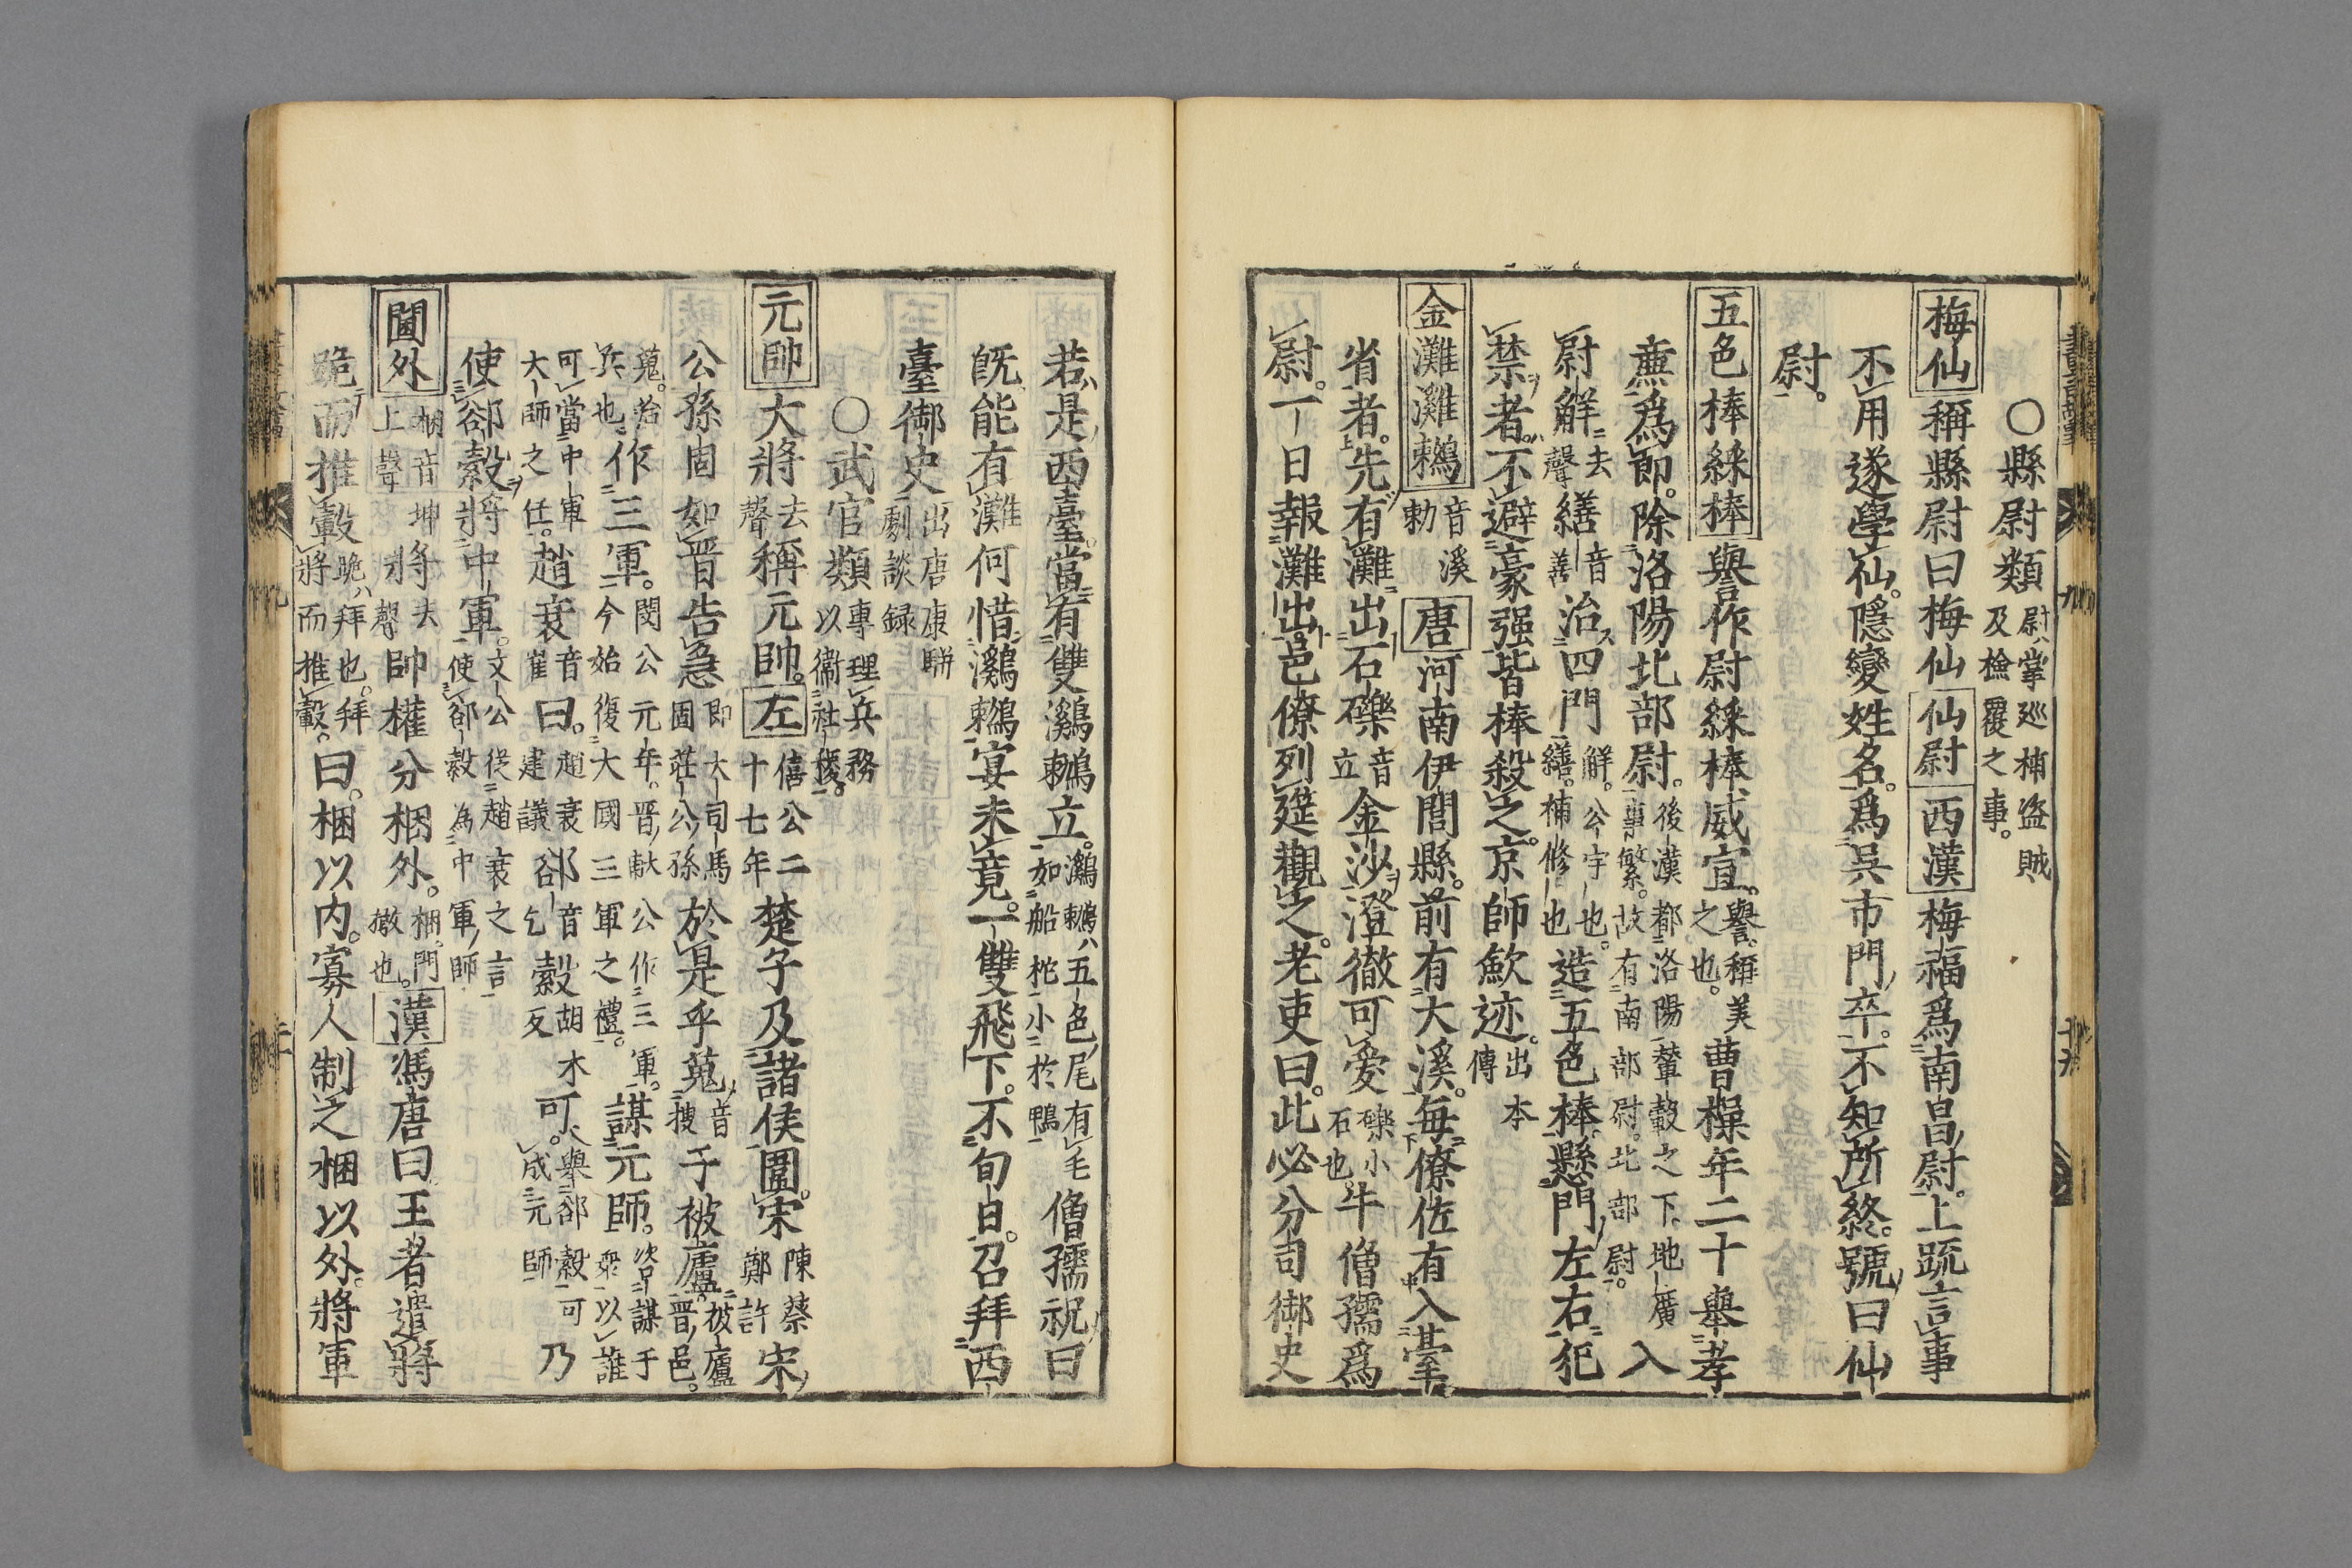 ○縣尉類 尉ハ掌廵捕盗賊及檢覆之事。
梅仙 稱縣尉曰梅仙 仙尉 西漢 梅福爲南昌尉。上疏言事
不用遂學仙。隠變姓名。爲呉市門卒。不知所終。號曰仙
尉。
五色棒綵棒 譽作尉綵棒威宣。譽。稱美之也。曹操年二十舉孝
亷爲郎。除洛陽北部尉。後漢都洛陽輦轂之下。地廣事繁。故有南部尉。北部尉。入
尉觧 去聲 繕 音善 治四門 觧。公宇也。繕。補修也 造五色棒。懸門左右犯
禁者。不避豪强皆棒殺之。京師歛迹。出本傳
金灘灘鶒 音溪勅 唐 河南伊闊縣。前有大溪。每僚佐有入臺
省者。先有灘出石礫 音立 金沙澄徹可愛 礫小石也。牛僧孺爲
尉。一日報灘出。邑僚列筵觀之。老吏曰。此必分司御史
若是西臺。當有雙鸂鶒立。鸂鶒ハ五色尾有毛如船柁小於鴨 僧孺祝曰
旣能有灘何惜鸂鶒宴未竟。一雙飛下。不旬日。召拜西
臺御史 出唐康騈劇談録
○武官類 專理兵務以衞社稷。
元帥 大將 去聲 稱元帥。左 僖公二十七年 楚子及諸侯圍宋。陳蔡鄭許 宋
公孫固如晋告急 卽大司馬固莊公孫 於是乎蒐 音搜 于被廬。被廬晋邑。
蒐。治兵也。作三軍。閔公元年。晋献公作三軍。今始復大國三軍之禮。謀元師。咨謀于衆以誰
可當中軍大師之任。趙衰 音崔 曰。趙衰建議 郤 音乞 縠 胡木反 可。舉郤縠可成元師 乃
使郤縠將中軍。文公從趙衰之言使郤縠為中軍師
閫外 梱音坤上聲 將 去聲 帥權分梱外。梱。門橛也。漢 馮唐曰王者遣將
跪而推轂 跪ハ拜也。拜將而推轂。曰。梱以内。寡人制之梱以外。將軍